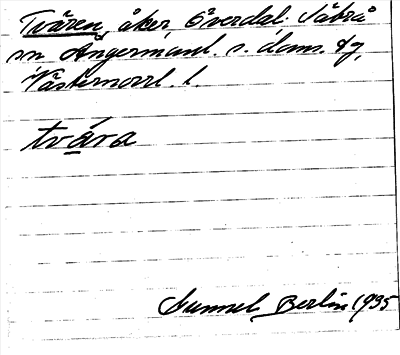 Tvären, åker, Överdal. Säbrå
sn Ångermanl. s. doms. fg,
Västernorrl. l.
tvära
Gunnel Berlin 1935